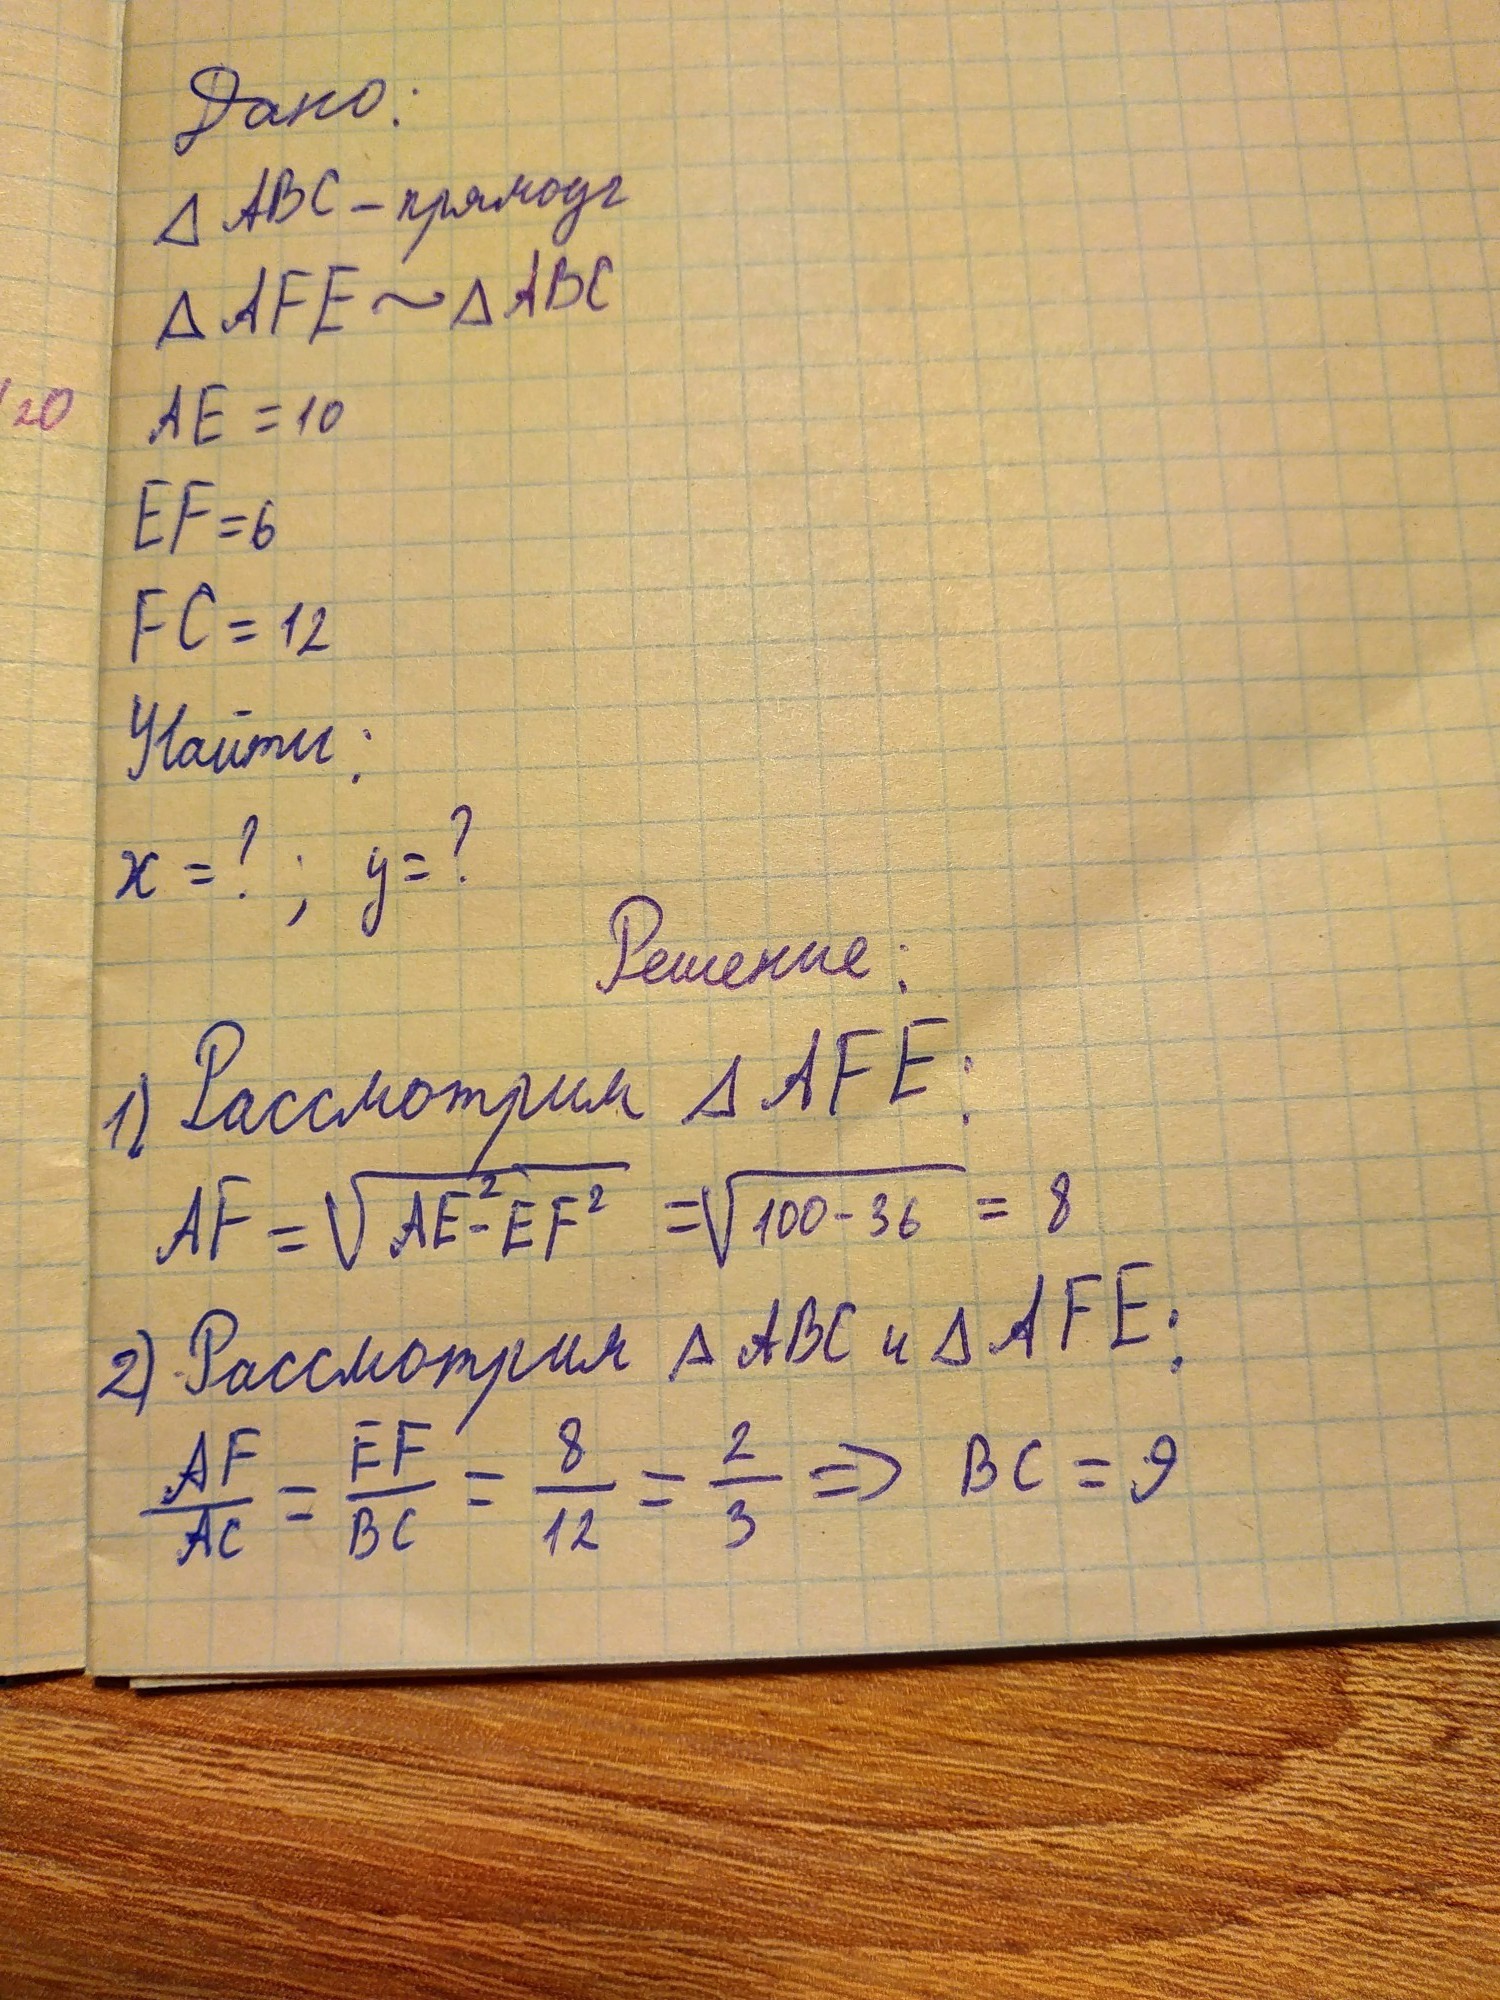 Дано:
△ ABC - прямоуг
△ AFE ~ △ ABC
120
AE = 10
EF = 6
FC = 12
Найти:
x = ? ; y = ?
Решение:
1) Рассмотрим △ AFE:
AF = √(AE² - EF²) = √(100 - 36) = 8
2) Рассмотрим △ ABC и △ AFE:
AF/AC = EF/BC = 8/12 = 2/3 => BC = 9